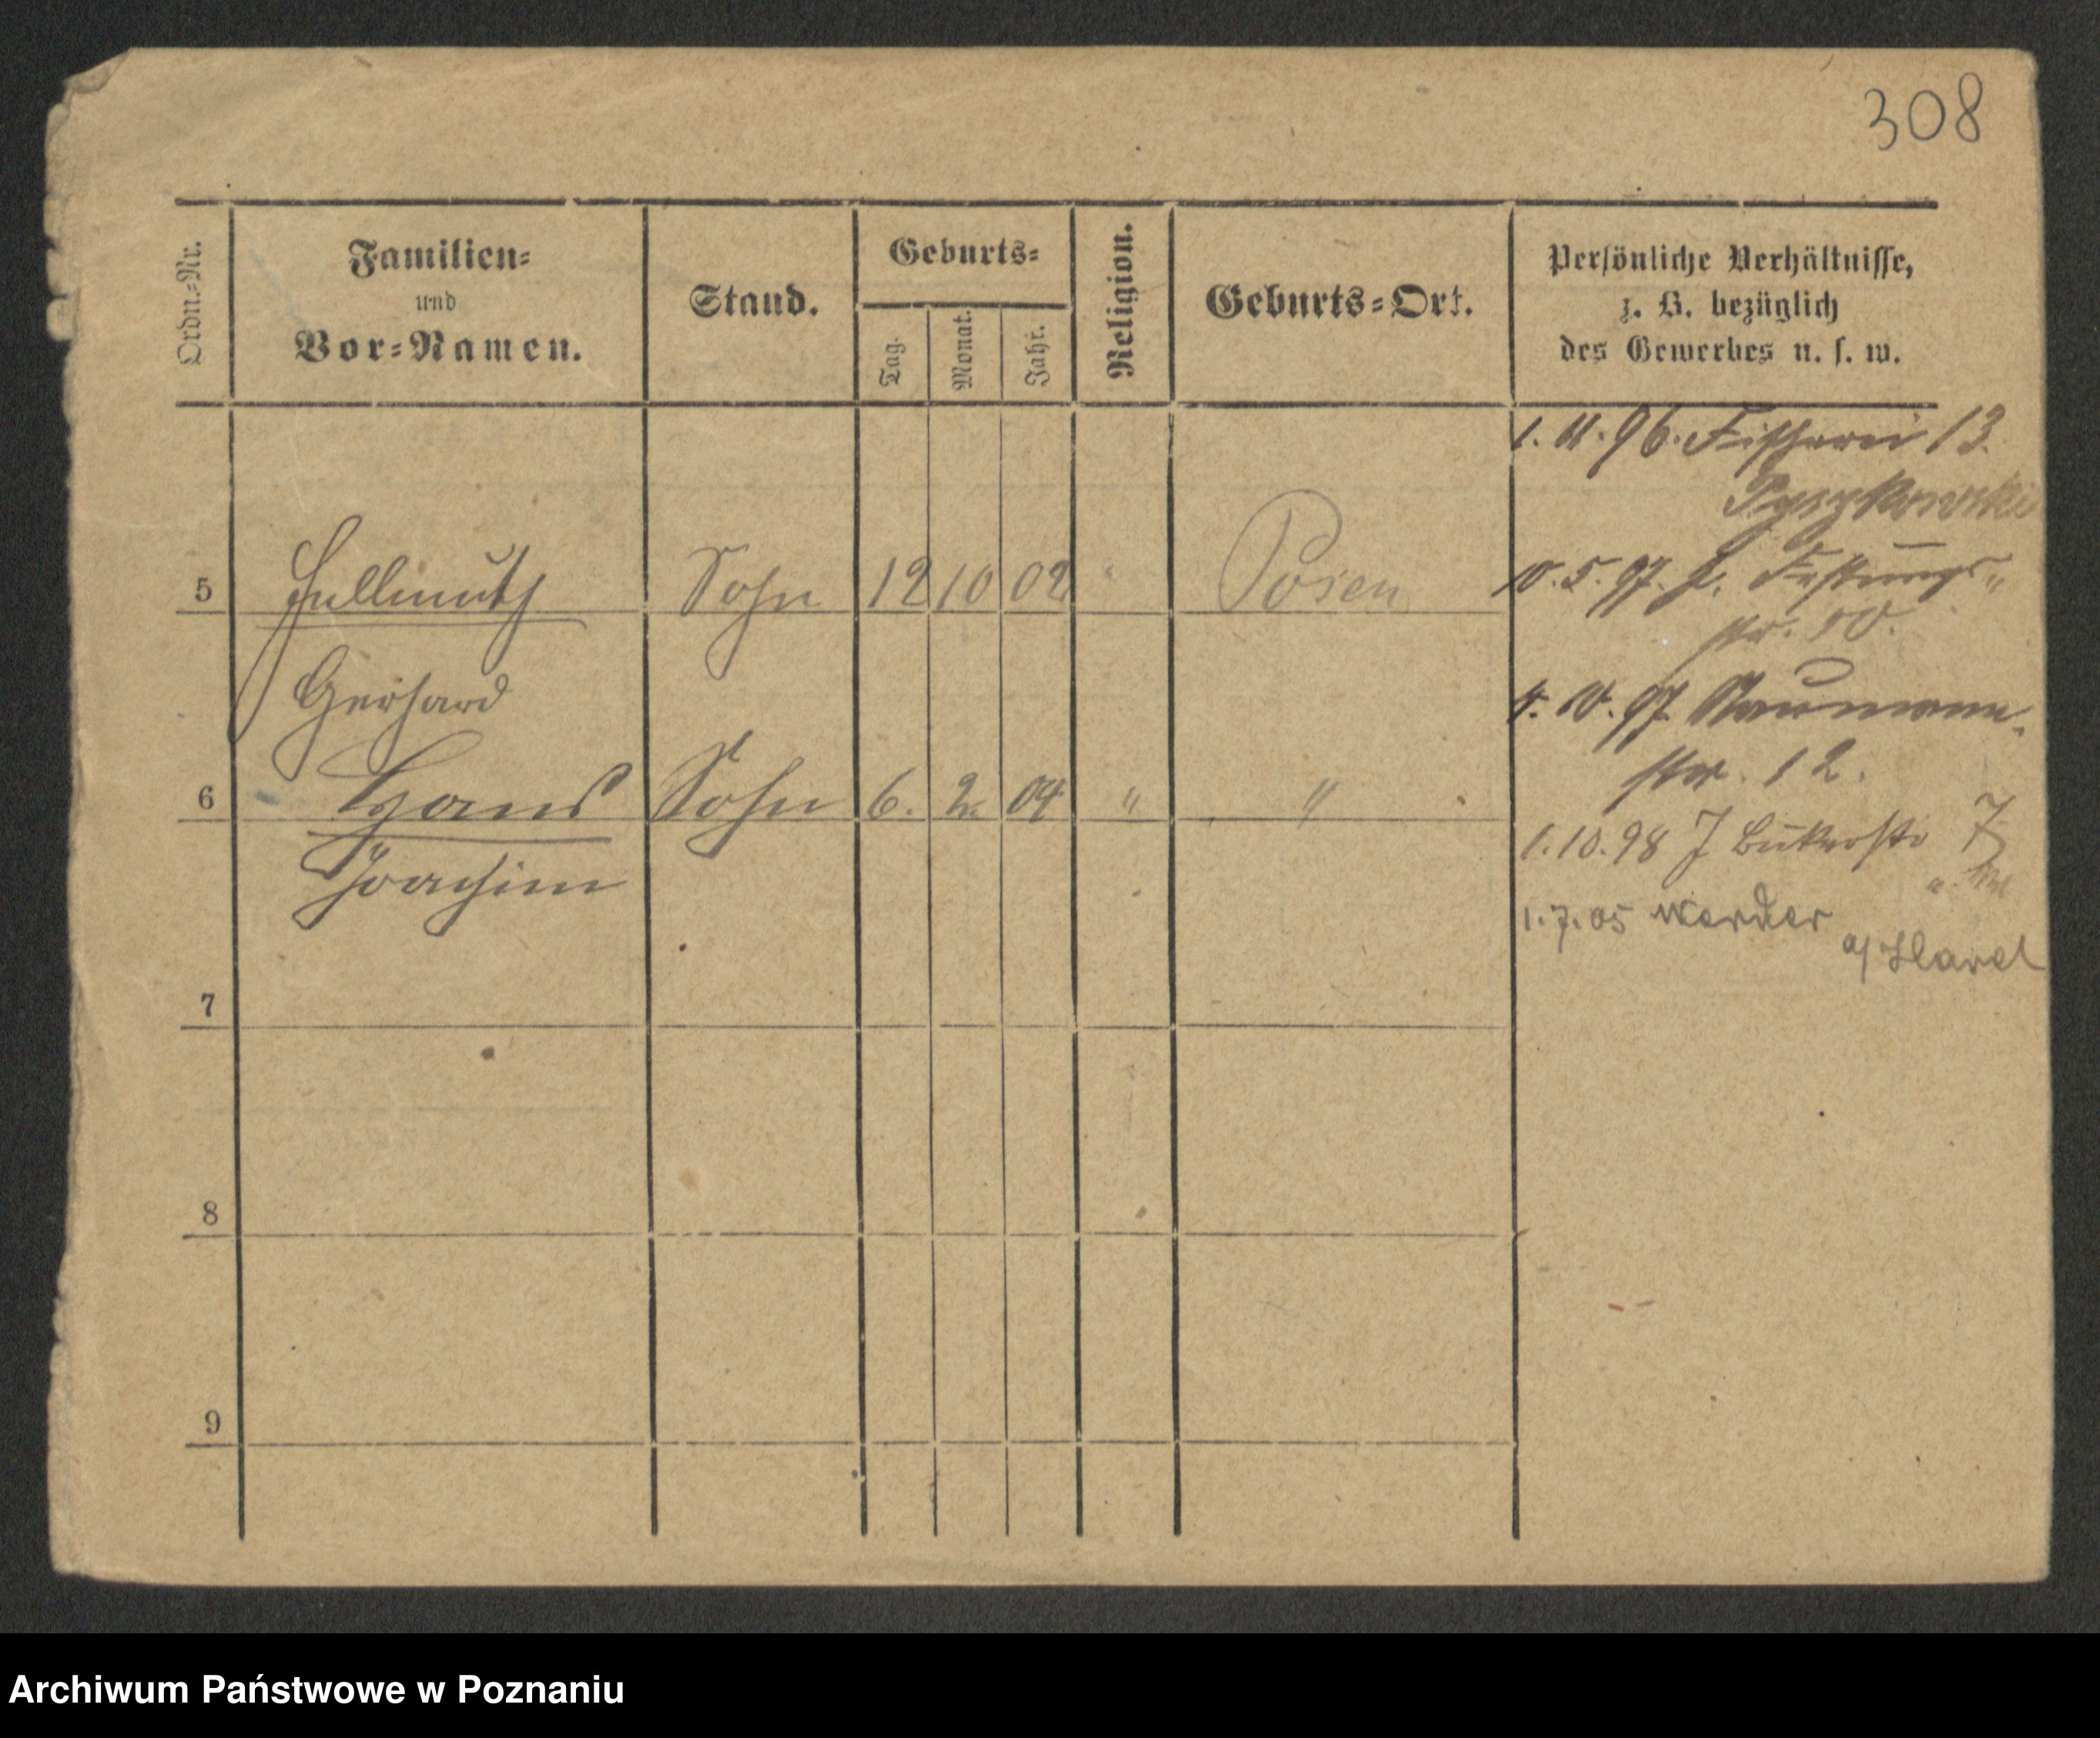 308
Ordn.-Nr.
Familien-
und
Vor-Namen.
Stand.
Geburts-
Tag.
Monat.
Jahr.
Religion.
Geburts-Ort.
Persönliche Verhältnisse,
z. B. bezüglich
des Gewerbes u. s. w.
1. 11. 96. Fischerei 13.
Pyszkowski
5 Hellmuth Sohn 12 10 02 " Posen
Gerhard
10. 5. 97. Festungs-
str.
4. 10. 97 Naumann-
str. 12.
6 Hans Sohn 6. 2. 04 " "
Joachim
1. 10. 98 J Bukerstr 7
1. 7. 05 Werder
a/Havel
7
8
9
Archiwum Państwowe w Poznaniu